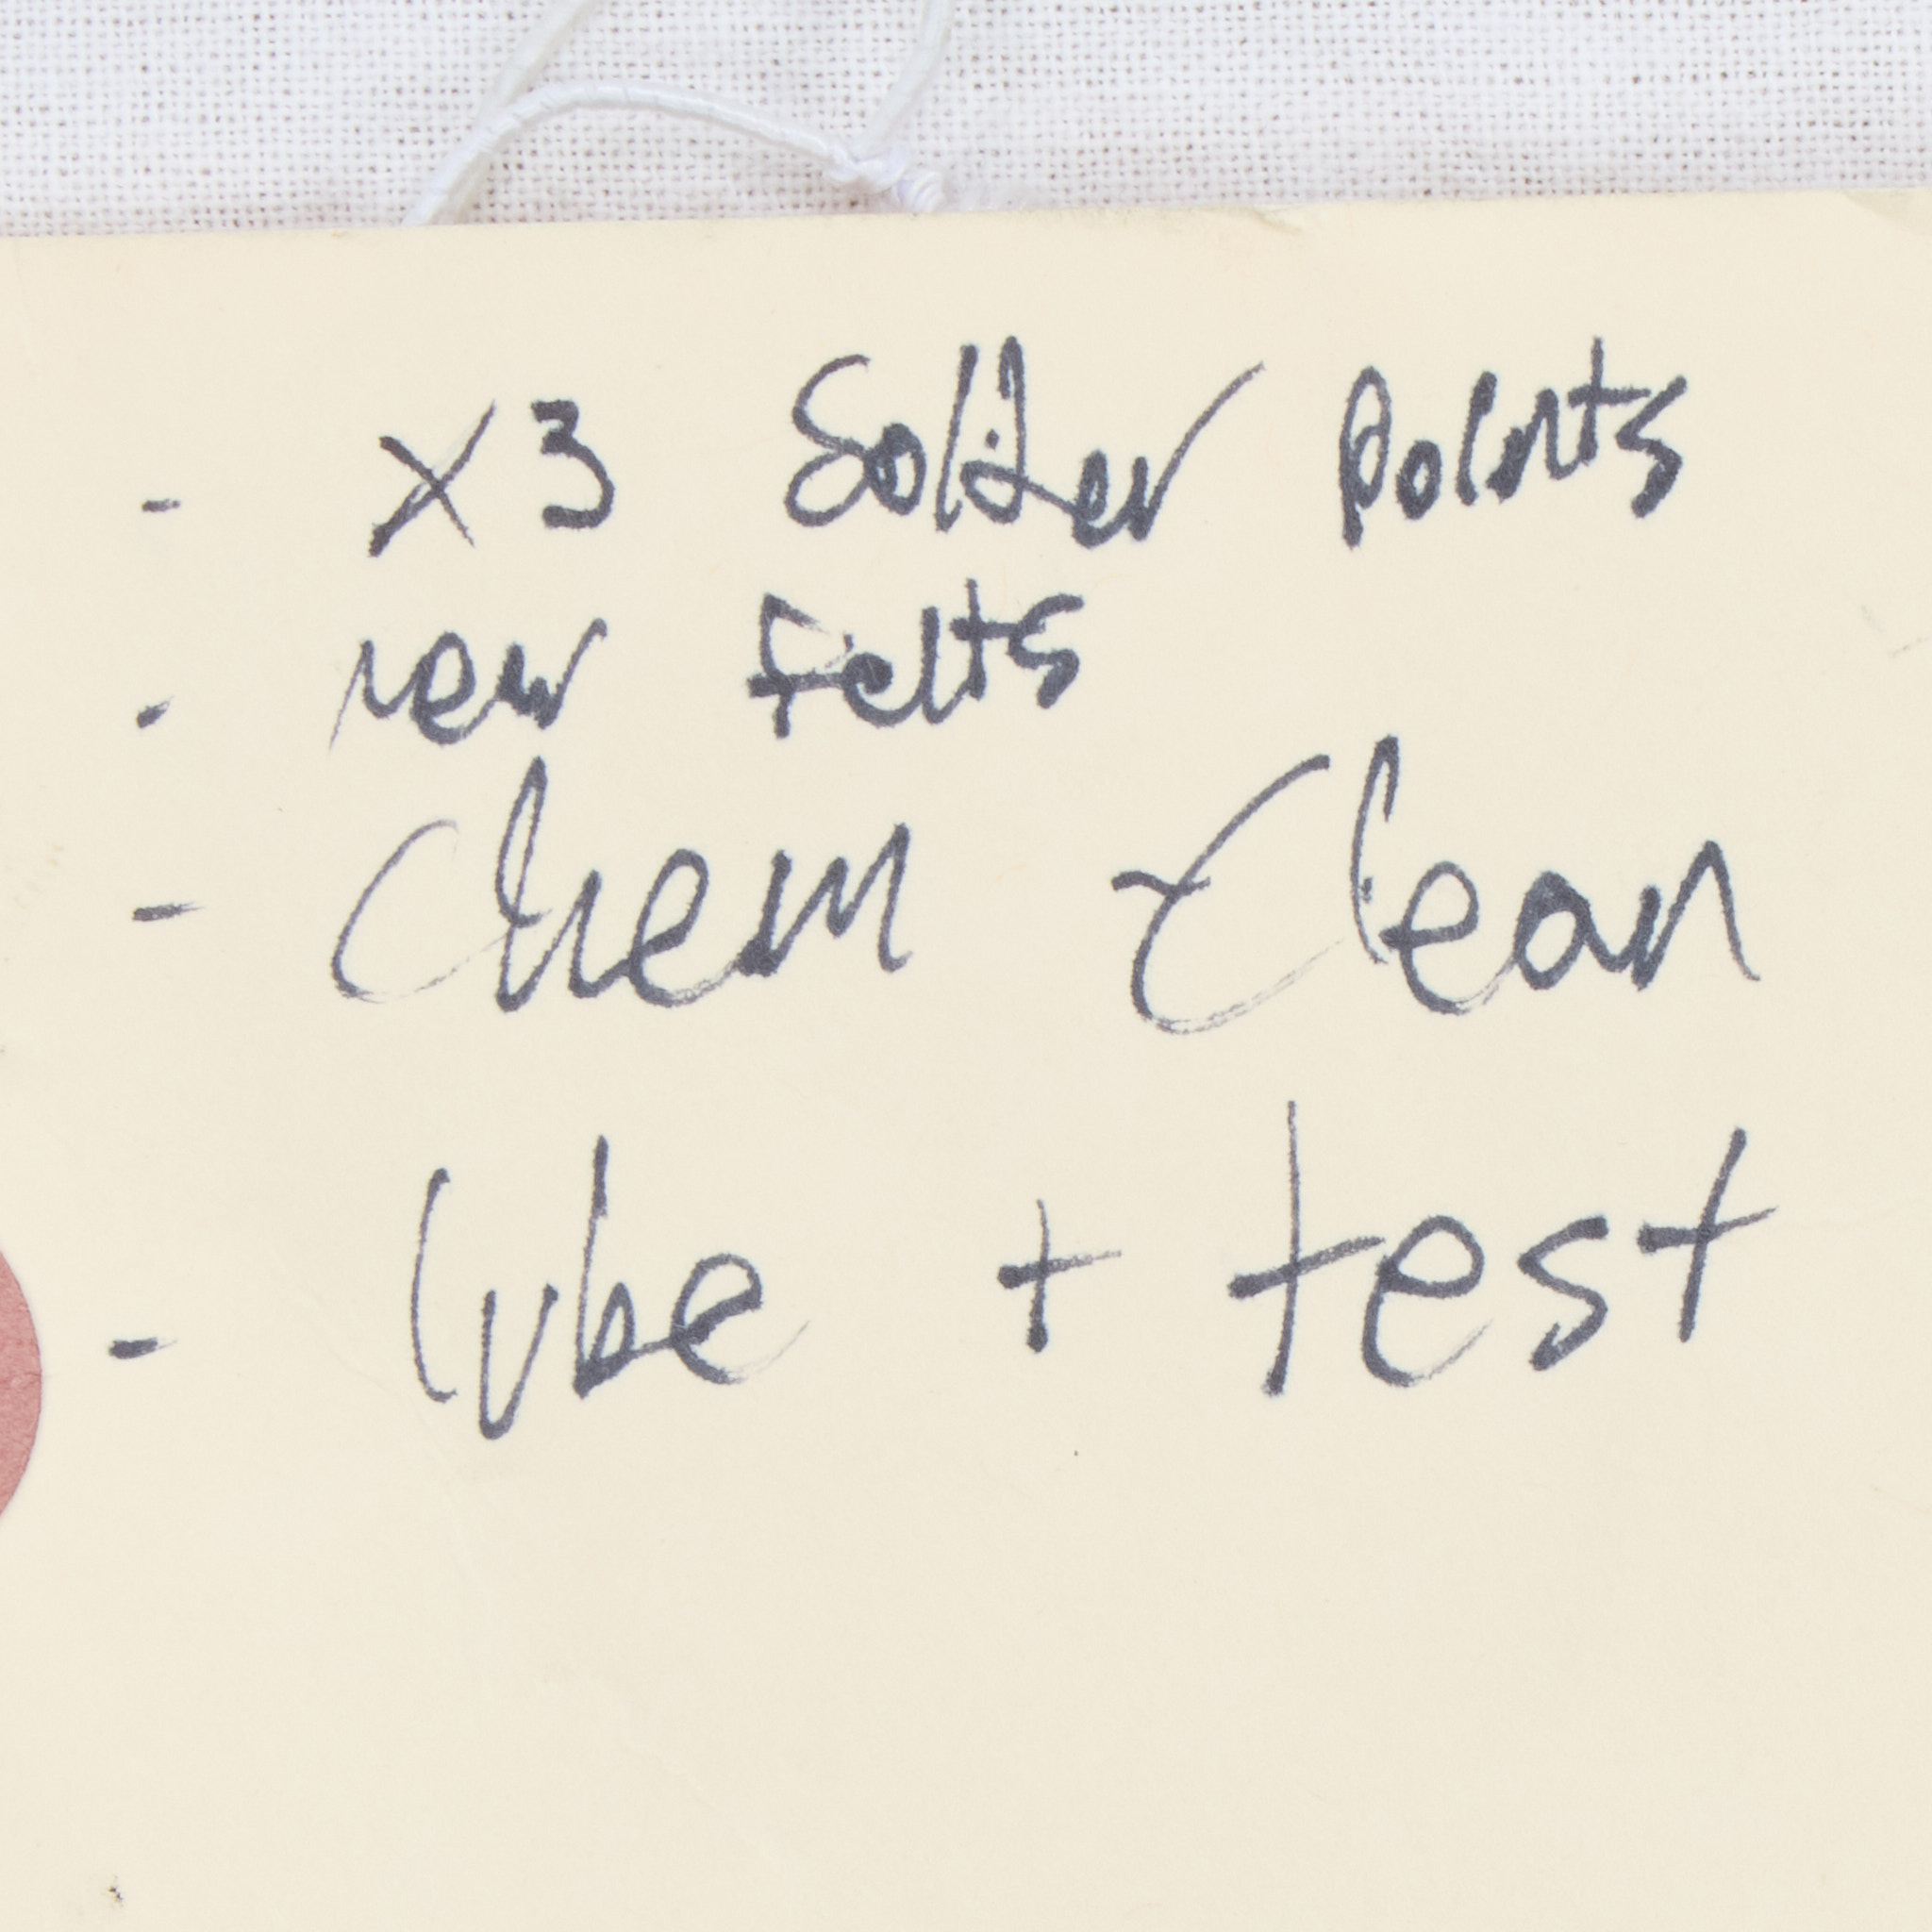 - x3 Solder Points
- new Felts
- Chem Clean
- lube + test